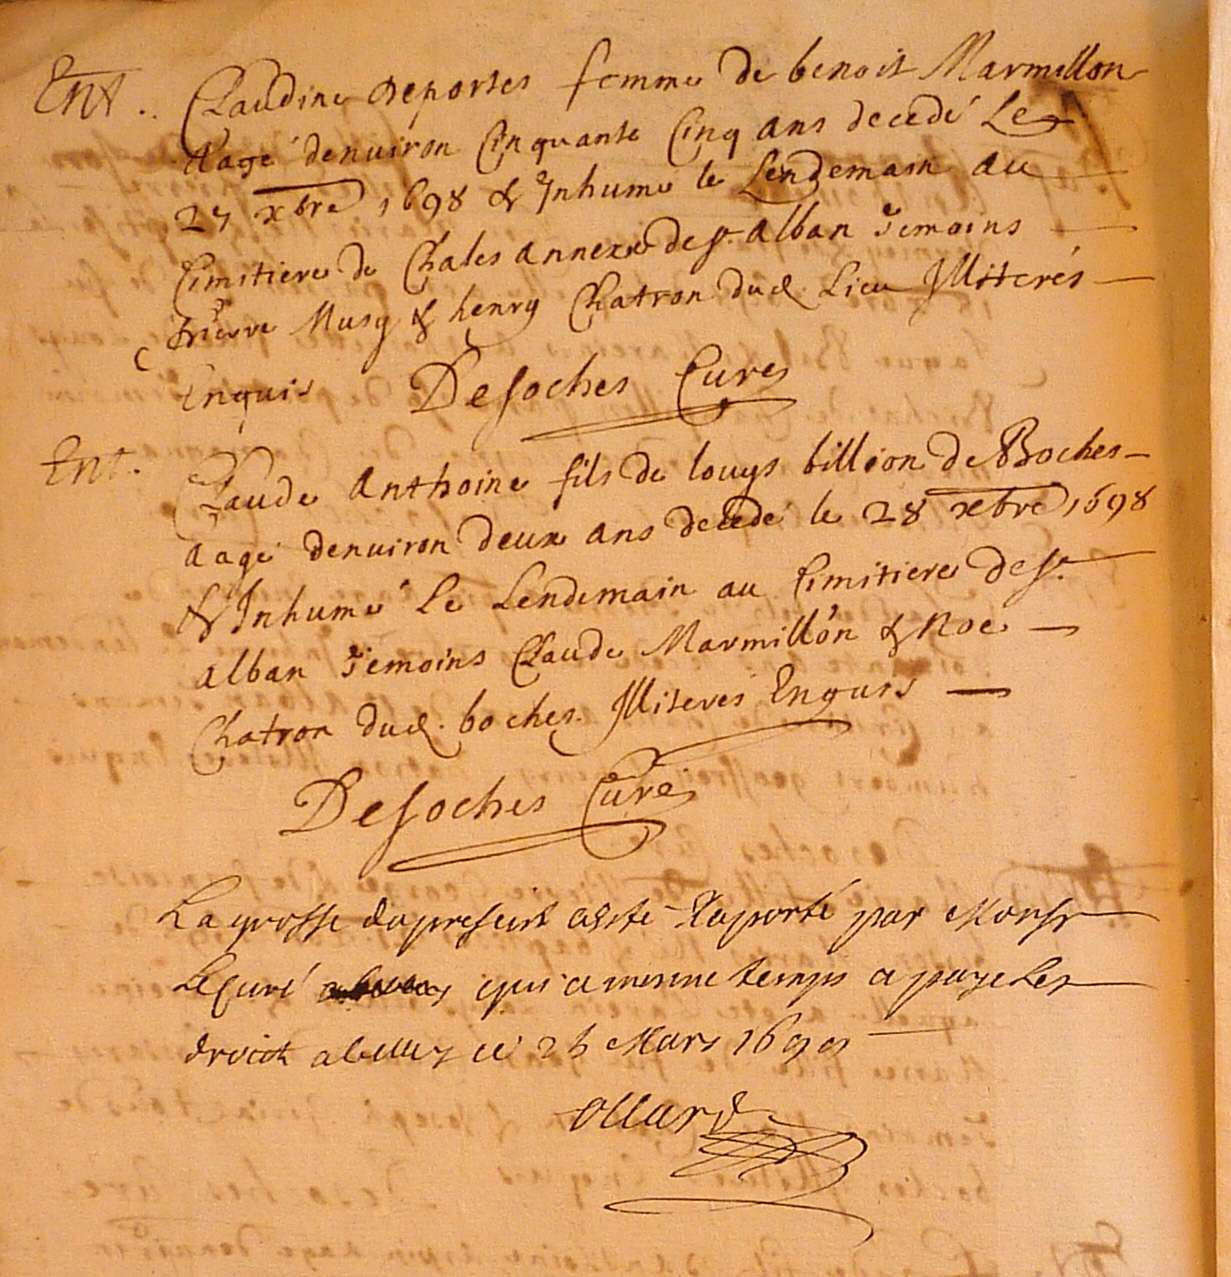 Ent. Claudine deportes femme de benoit Marmillon
aagé denuiron Cinquante Cinq ans decedé Le
27 xbre 1698 & Inhume le Lendemain au
Cimitiere de Chales annexe de st. alban Temoins
pierre Musy & henry Chatron dud. Lieu Illiterés
Enquis Desoches Curé
Ent. Claude Anthoine fils de louys billion de Boches
aagé denuiron deux ans decedé le 28 xebre 1698
& Inhumé Le Lendemain au Cimitiere de st.
alban Temoins Claude Marmillon & Noe
Chatron dud. boches. Illiteres Enquis
Desoches Curé
La grosse du present a esté raporté par Monsr
Le Curé qui a mesme temps a paye Les
droict a belley ce 26 Mars 1699